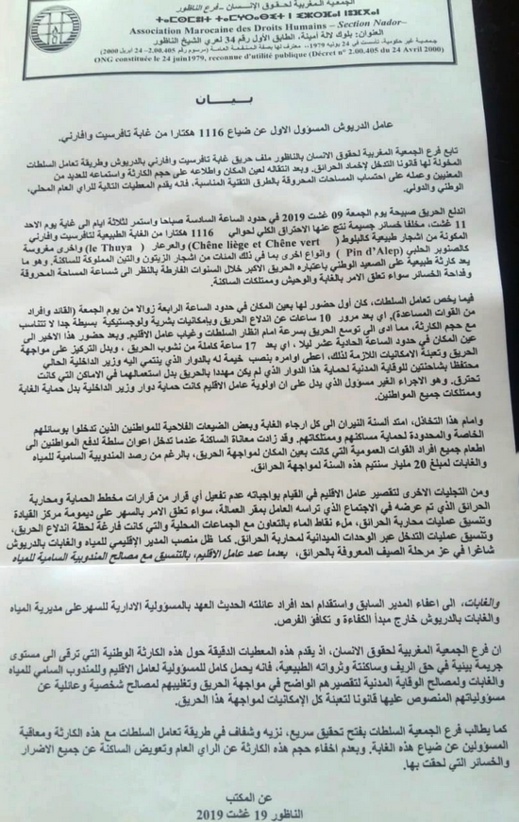 الجمعية المغربية لحقوق الإنسان - فرع الناظور
Association Marocaine des Droits Humains – Section Nador–
العنوان: بلوك لالة أمينة، الطابق الأول رقم 34 لعري الشيخ الناظور
ONG constituée le 24 juin1979, reconnue d'utilité publique (Décret n° 2.00.405 du 24 Avril 2000)
بيــــان
عامل الدريوش المسؤول الاول عن ضياع 1116 هكتارا من غابة تافرسيت وافارني.
تابع فرع الجمعية المغربية لحقوق الانسان بالناظور ملف حريق غابة تافرسيت وافارني بالدريوش وطريقة تعامل السلطات
المخولة لها قانونا التدخل لإخماد الحرائق. وبعد انتقاله لعين المكان واطلاعه على حجم الكارثة واستماعه للعديد من
المعنيين وعمله على احتساب المساحات المحروقة بالطرق التقنية المناسبة، فانه يقدم المعطيات التالية للراي العام المحلي،
الوطني والدولي.
اندلع الحريق صبيحة يوم الجمعة 09 غشت 2019 في حدود الساعة السادسة صباحا واستمر لثلاثة ايام الى غاية يوم الاحد
11 غشت، مخلفا خسائر جسيمة نتج عنها الاحتراق الكلي لحوالي 1116 هكتارا من الغابة الطبيعية لتافرسيت وافارني
المكونة من اشجار طبيعية كالبلوط (Chêne liège et Chêne vert) والعرعار (le Thuya) واخرى مغروسة
كالصنوبر الحلبي (Pin d'Alep) وانواع اخرى بما في ذلك المئات من اشجار الزيتون والتين المملوكة للساكنة. وهو ما
يعد كارثة طبيعية على الصعيد الوطني باعتباره الحريق الاكبر خلال السنوات الفارطة بالنظر الى شساعة المساحة المحروقة
وفداحة الخسائر سواء تعلق الامر بالغابة والوحيش وممتلكات الساكنة.
فيما يخص تعامل السلطات، كان أول حضور لها بعين المكان في حدود الساعة الرابعة زوالا من يوم الجمعة (القائد وافراد
من القوات المساعدة)، اي بعد مرور 10 ساعات عن اندلاع الحريق وبإمكانيات بشرية ولوجستيكية بسيطة جدا لا تتناسب
مع حجم الكارثة، مما ادى الى توسع الحريق بسرعة امام انظار السلطات و غياب عامل الاقليم. وبعد حضور هذا الاخير الى
عين المكان في حدود الساعة الحادية عشر ليلا ، اي بعد 17 ساعة كاملة من نشوب الحريق ، وبدل التركيز على مواجهة
الحريق وتعبئة الامكانيات اللازمة لذلك، اعطى اوامره بنصب خيمة له بالدوار الذي ينتمي اليه وزير الداخلية الحالي
محتفظا بشاحنتين للوقاية المدنية لحماية هذا الدوار الذي لم يكن مهددا بالحريق بدل استعمالهما في الاماكن التي كانت
تحترق. وهو الاجراء الغير مسؤول الذي يدل على ان اولوية عامل الاقليم كانت حماية دوار وزير الداخلية بدل حماية الغابة
وممتلكات جميع المواطنين.
وامام هذا التخاذل، امتد ألسنة النيران الى كل ارجاء الغابة وبعض الضيعات الفلاحية للمواطنين الذين تدخلوا بوسائلهم
الخاصة والمحدودة لحماية مساكنهم وممتلكاتهم. وقد زادت معاناة الساكنة عندما تدخل اعوان سلطة لدفع المواطنين الى
اطعام جميع افراد القوات العمومية التي كانت بعين المكان لمواجهة الحريق، بالرغم من رصد المندوبية السامية للمياه
والغابات لمبلغ 20 مليار سنتيم هذه السنة لمواجهة الحرائق.
ومن التجليات الاخرى لتقصير عامل الاقليم في القيام بواجباته عدم تفعيل أي قرار من قرارات مخطط الحماية ومحاربة
الحرائق الذي تم عرضه في الاجتماع الذي تراسه العامل بمقر العمالة، سواء تعلق الامر بالسهر على ديمومة مركز القيادة
وتنسيق عمليات محاربة الحرائق، ملء نقاط الماء بالتعاون مع الجماعات المحلية والتي كانت فارغة لحظة اندلاع الحريق،
وتنسيق عمليات التدخل عبر الوحدات الميدانية لمحاربة الحرائق. كما ظل منصب المدير الإقليمي للمياه والغابات بالدريوش
شاغرا في عز مرحلة الصيف المعروفة بالحرائق، بعدما عمد عامل الأقليم، بالتنسيق مع مصالح المندوبية السامية للمياه
والغابات، الى اعفاء المدير السابق واستقدام احد افراد عائلته الحديث العهد بالمسؤولية الادارية للسهر على مديرية المياه
والغابات بالدريوش خارج مبدأ الكفاءة و تكافؤ الفرص.
ان فرع الجمعية المغربية لحقوق الانسان، اذ يقدم هذه المعطيات الدقيقة حول هذه الكارثة الوطنية التي ترقى الى مستوى
جريمة بيئية في حق الريف وساكنته وثرواته الطبيعية، فانه يحمل كامل للمسؤولية لعامل الاقليم وللمندوب السامي للمياه
والغابات ولمصالح الوقاية المدنية لتقصيرهم الواضح في مواجهة الحريق وتغليبهم لمصالح شخصية وعائلية عن
مسؤولياتهم المنصوص عليها قانونا لتعبئة كل الإمكانيات لمواجهة هذا الحريق.
كما يطالب فرع الجمعية السلطات بفتح تحقيق سريع، نزيه وشفاف في طريقة تعامل السلطات مع هذه الكارثة ومعاقبة
المسؤولين عن ضياع هذه الغابة. وبعدم اخفاء حجم هذه الكارثة عن الراي العام وتعويض الساكنة عن جميع الاضرار
والخسائر التي لحقت بها.
عن المكتب
الناظور 19 غشت 2019